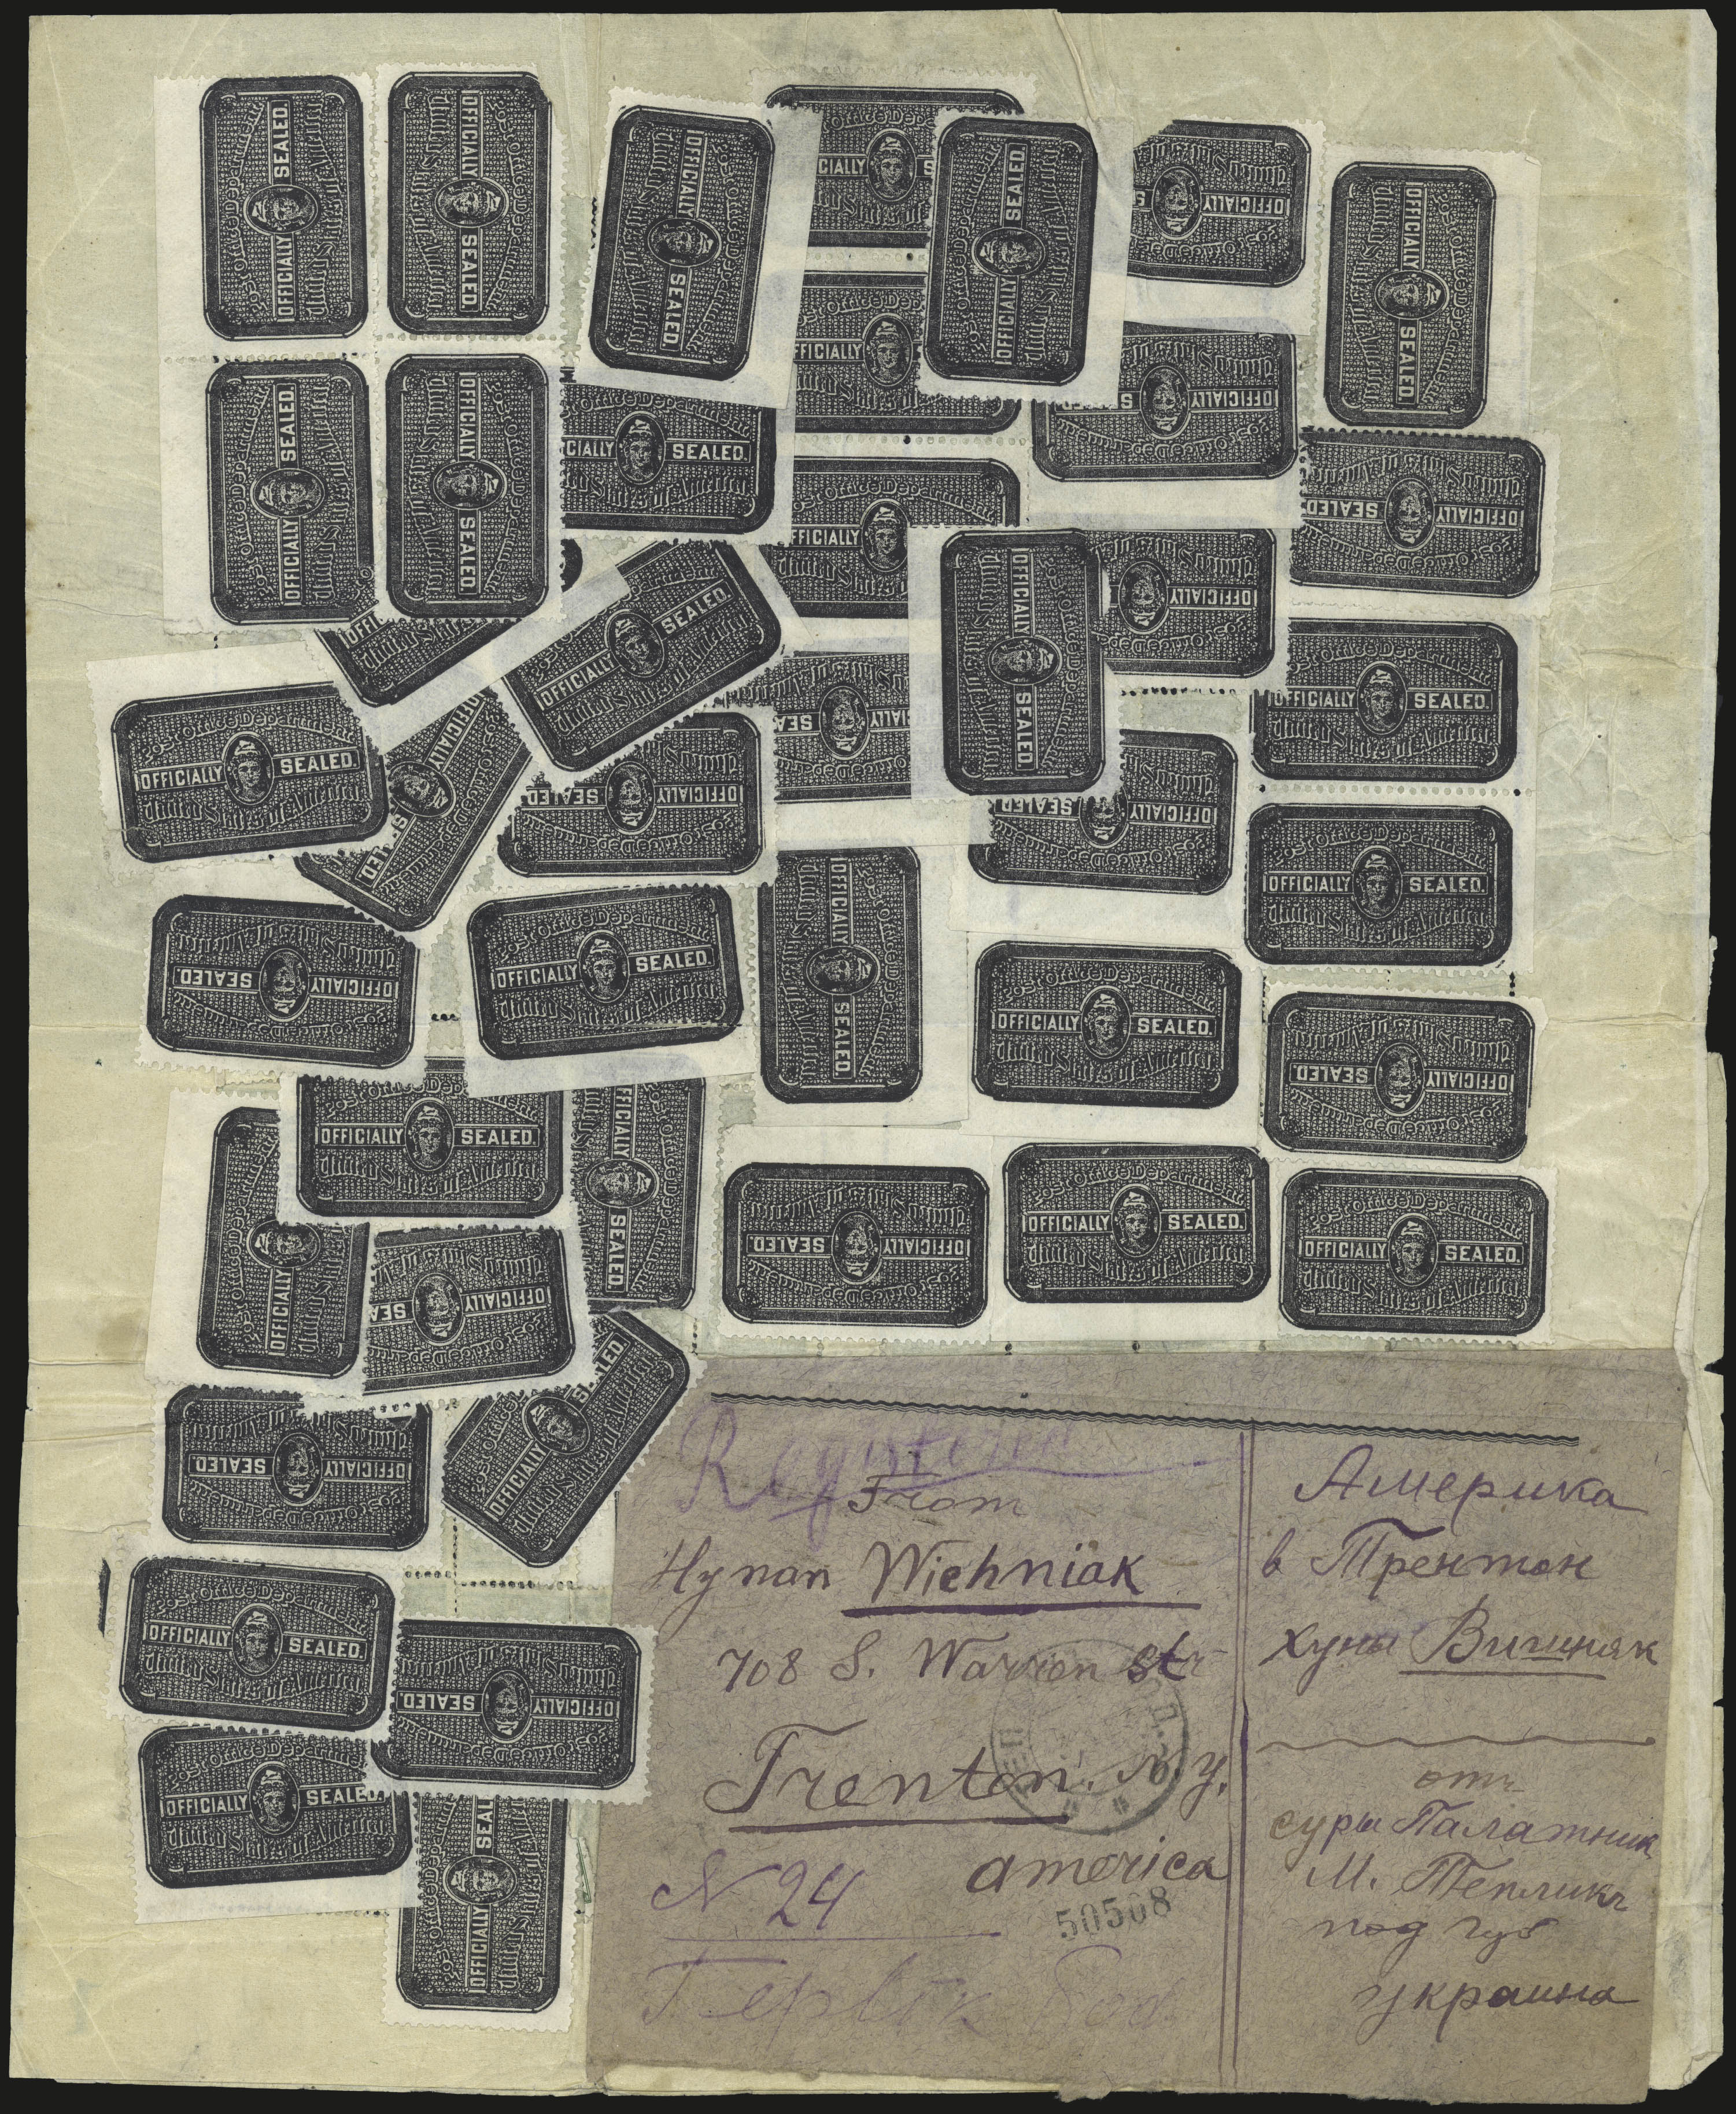 Post Office Department
OFFICIALLY SEALED.
United States of America
Registered
From
Hyman Wiehniak
708 S. Warren str
Trenton. N. y.
america
N 24
50508
Америка
в Трентон
хуны Вишняк
отъ
суры Палатник
М. Теплик
под губ
украина